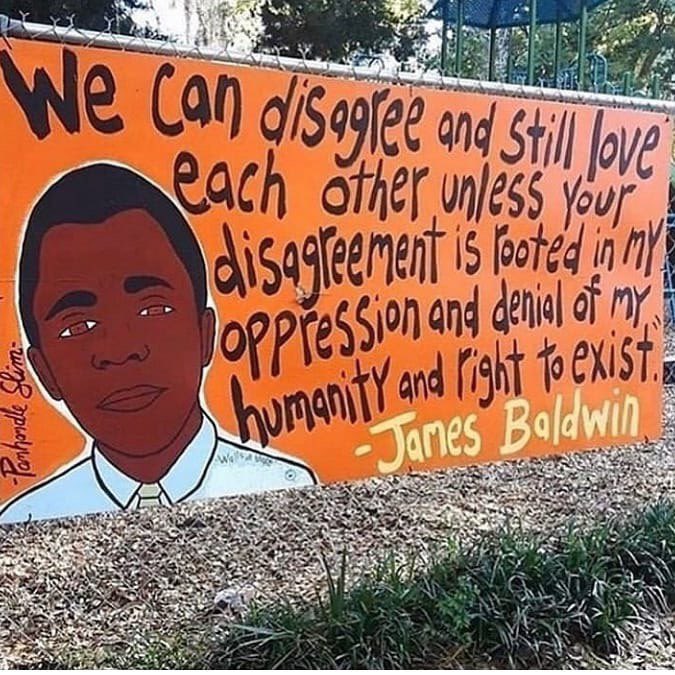 We Can disagree and Still love
each other unless your
disagreement is rooted in my
oppression and denial of my
humanity and right to exist."
-James Baldwin
-Panhandle Slim-